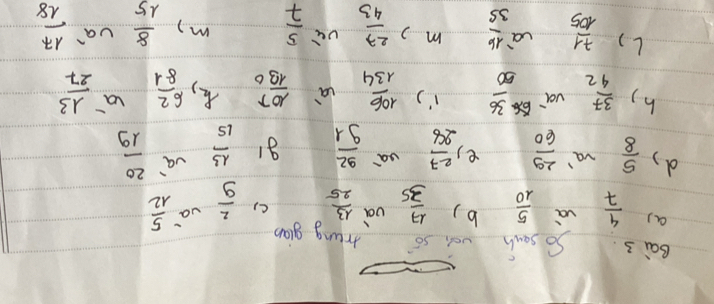 Bài 3: So sánh với số trung gian
a) 4/7 và 5/10 b) 17/35 và 13/25 c) 2/9 và 5/12
d) 5/8 và 29/60 e) 27/28 và 92/91 g) 13/15 và 20/19
h) 37/42 và 36/50 i) 106/134 và 107/130 k) 62/81 và 13/27
l) 71/105 và 16/35 m) 27/43 và 5/7 m) 8/15 và 17/18